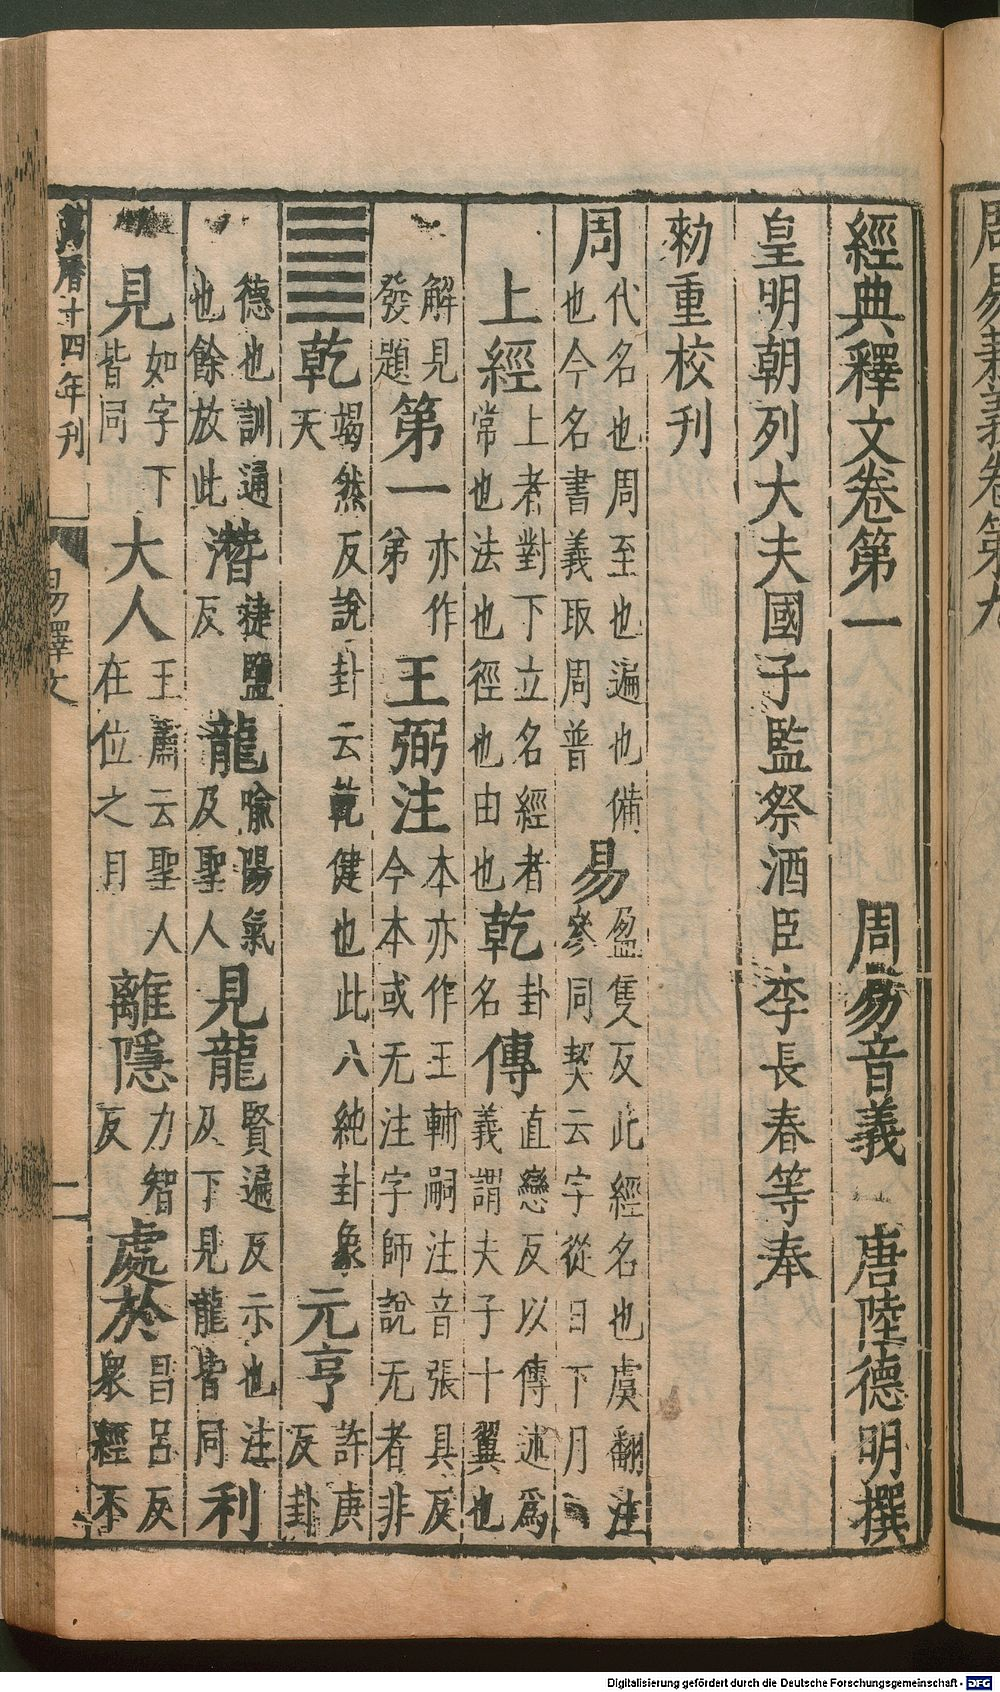 經典釋文卷第一 周易音義 唐陸德明撰
皇明朝列大夫國子監祭酒臣李長春等奉
勑重校刊
周 代名也周至也遍也備也今名書義取周普 易 盈隻反此經名也虞翻注參同契云字從日下月
上經 上者對下立名經者常也法也徑也由也 乾 卦名 傳 直戀反以傳述爲義謂夫子十翼也
解見發題 第一 亦作弟 王弼注 本亦作王輔嗣注音張具反今本或无注字師說无者非
䷀乾 竭然反說卦云乾健也此八純卦象天 元亨 許庚反卦
德也訓通也餘放此 潛 捷鹽反 龍 喻陽氣及聖人 見龍 賢遍反示也注及下見龍皆同 利
見 如字下皆同 大人 王肅云聖人在位之目 離隱 力智反 處於 昌呂反衆經不
萬曆十四年刊 易釋文 一
周易兼義卷第九
Digitalisierung gefördert durch die Deutsche Forschungsgemeinschaft - DFG